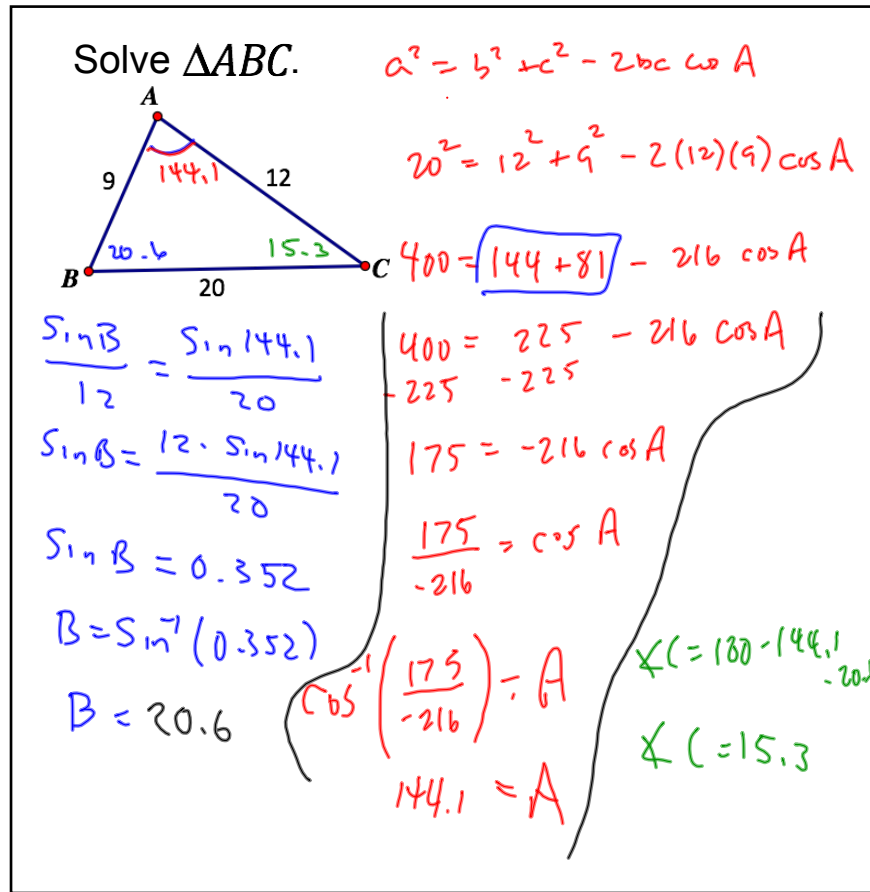 Solve ΔABC.
a² = b² + c² - 2bc cos A
A
9
144.1
12
20² = 12² + 9² - 2(12)(9) cos A
B
20.6
15.3
C
20
400 = 144 + 81 - 216 cos A
400 = 225 - 216 cos A
-225 -225
175 = -216 cos A
175/-216 = cos A
cos⁻¹(175/-216) = A
144.1 = A
Sin B/12 = Sin 144.1/20
Sin B = 12 · Sin 144.1/20
Sin B = 0.352
B = Sin⁻¹(0.352)
B = 20.6
∡C = 180 - 144.1
- 20.
∡C = 15.3